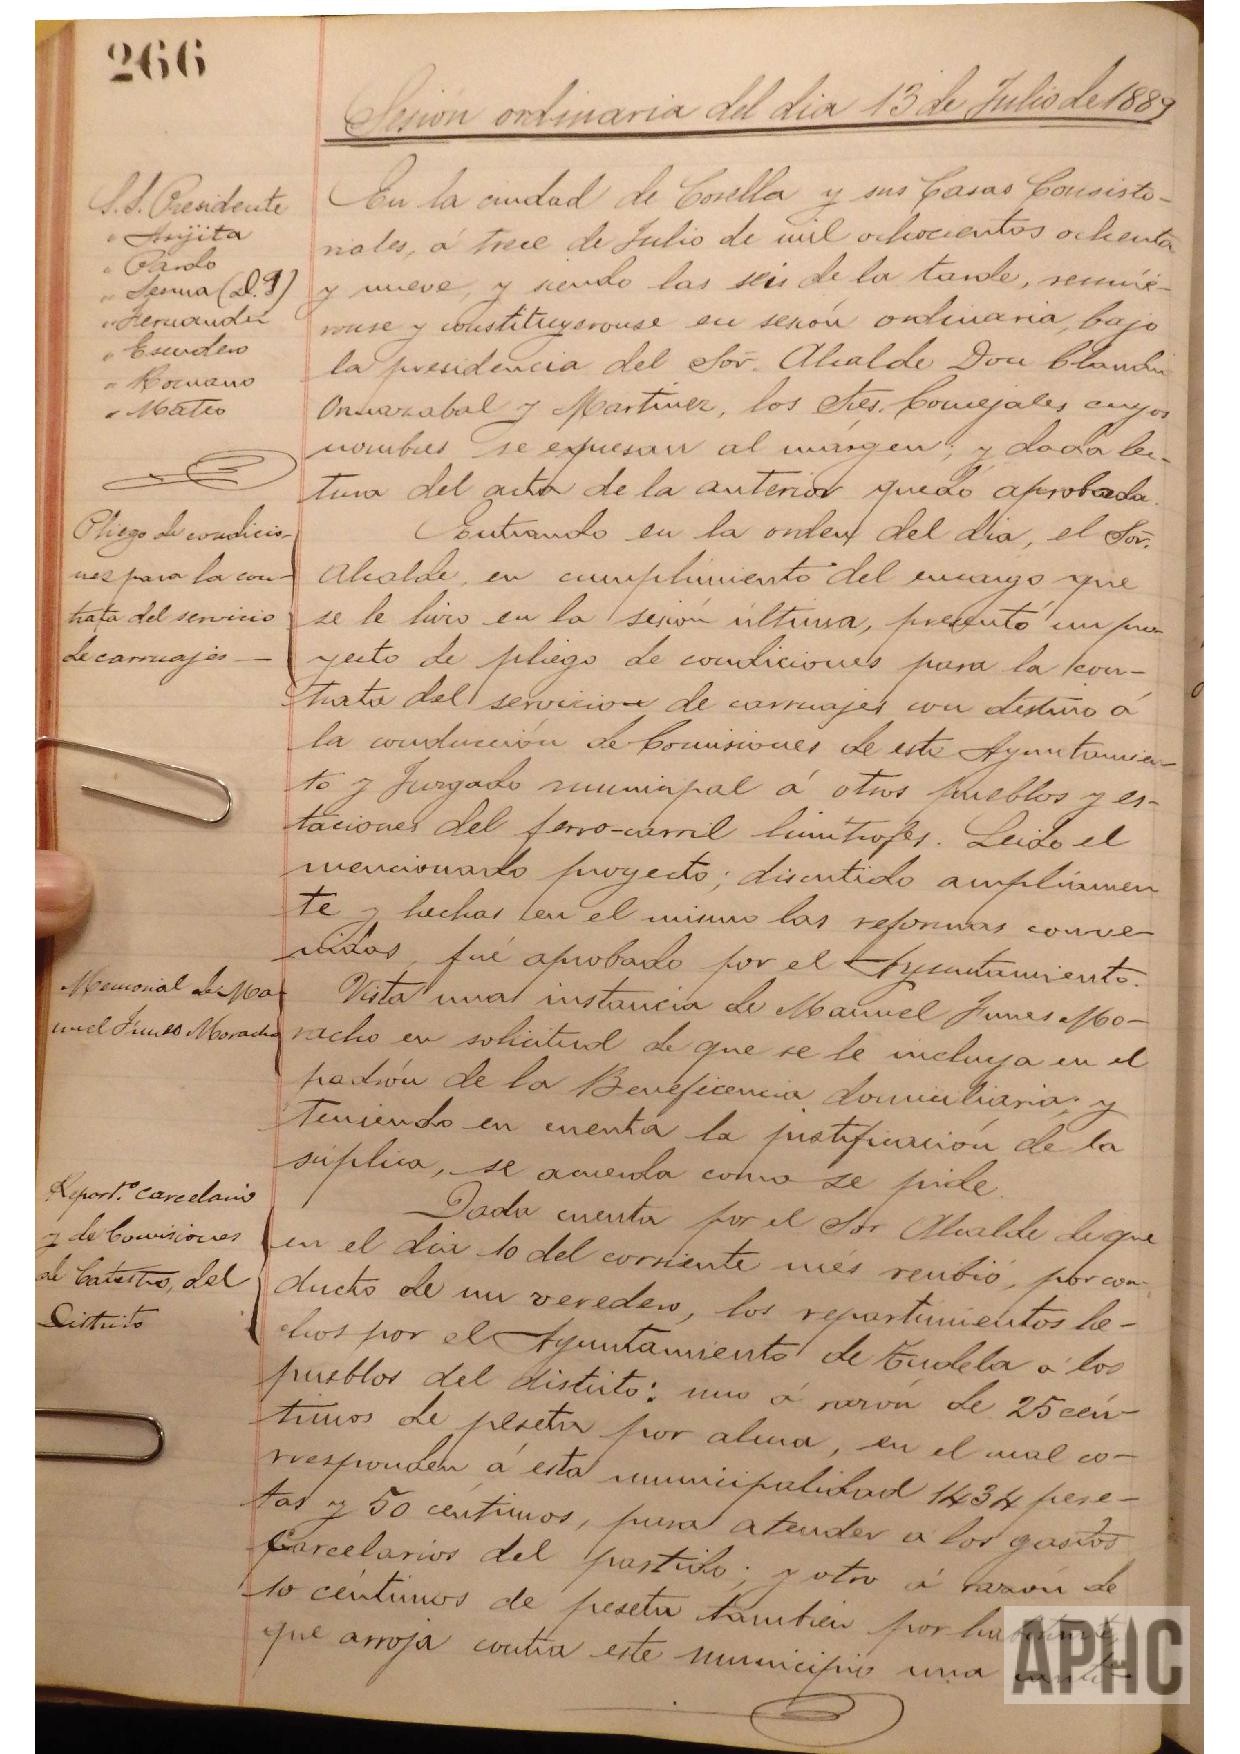 266
Sesión ordinaria del dia 13 de Julio de 1889
S.S. Presidente
" Arijita
" Pardo
" Sesma (D. J)
" Hernandez
" Escudero
" Romano
" Mateo
En la ciudad de Corella y sus Casas Consisto-
riales, á trece de Julio de mil ochocientos ochenta
y nueve, y siendo las seis de la tarde, reunié-
ronse y constituyeronse en sesión ordinaria, bajo
la presidencia del Sor. Alcalde Don Claudio
y Martinez, los Sres. Concejales cuyos
nombres se expresan al margen; y dada lec-
tura del acta de la anterior quedó aprobada.
Pliego de condicio-
nes para la con-
trata del servicio
de carruajes —
Entrando en la orden del dia, el Sor.
Alcalde, en cumplimiento del encargo que
se le hizo en la sesión última, presentó un pro-
yecto de pliego de condiciones para la con-
trata del servicio de carruajes con destino á
la conducción de Comisiones de este Ayuntamien-
to y Juzgado municipal á otros pueblos y es-
taciones del ferro-carril limítrofes. Leido el
mencionado proyecto; discutido ampliamen
te y hechas en el mismo las reformas conve-
nidas, fué aprobado por el Ayuntamiento.
Memorial de Ma-
nuel Jimes Moracho
Vista una instancia de Manuel Jimes Mo-
racho en solicitud de que se le incluya en el
padrón de la Beneficencia domiciliaria; y
teniendo en cuenta la justificación de la
súplica, se acuerda como se pide.
Repart.º carcelario
y de Comisiones
de Catastro, del
Distrito
Dada cuenta por el Sor Alcalde de que
en el dia 10 del corriente més recibió, por con-
ducto de un veredero, los repartimientos he-
chos por el Ayuntamiento de Tudela á los
pueblos del distrito: uno á razón de 25 cén-
timos de peseta por alma, en el cual co-
rresponden á esta municipalidad 1434 pese-
tas y 50 céntimos, para atender a los gastos
carcelarios del partido; y otro á razón de
10 céntimos de peseta también por habitante
que arroja contra este municipio una
APHC